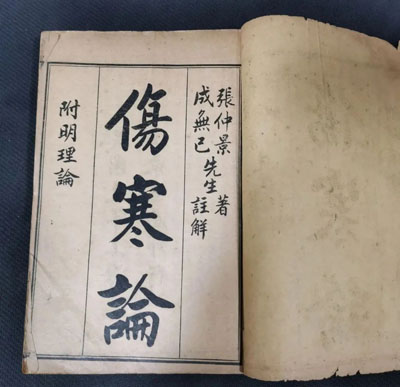 張仲景著
成無已先生註解
傷寒論
附明理論